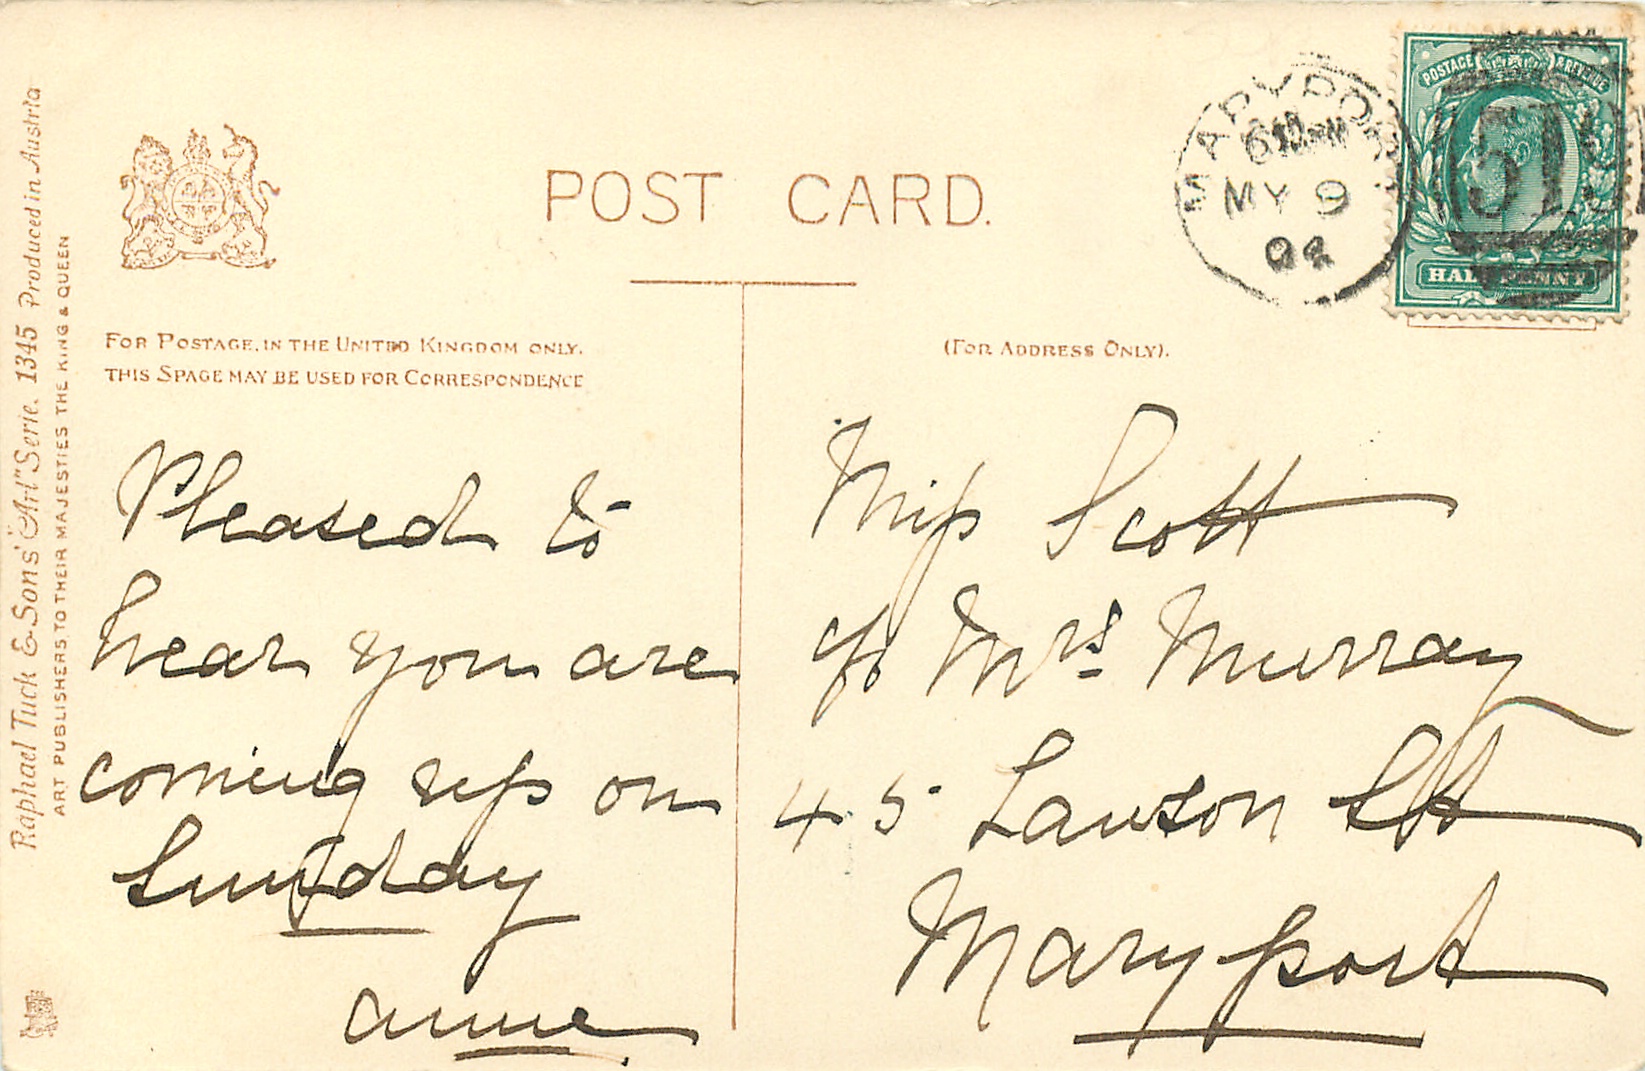 Raphael Tuck & Sons' "Art" Serie. 1345 Produced in Austria
ART PUBLISHERS TO THEIR MAJESTIES THE KING & QUEEN
POST CARD.
MARYPORT
MY 9
04
POSTAGE & REVENUE
HALFPENNY
FOR POSTAGE, IN THE UNITED KINGDOM ONLY.
THIS SPACE MAY BE USED FOR CORRESPONDENCE
(FOR ADDRESS ONLY).
Pleased to
hear you are
coming up on
Sunday
Annie
Miss Scott
c/o Mrs Murray
45 Lawson St
Maryport